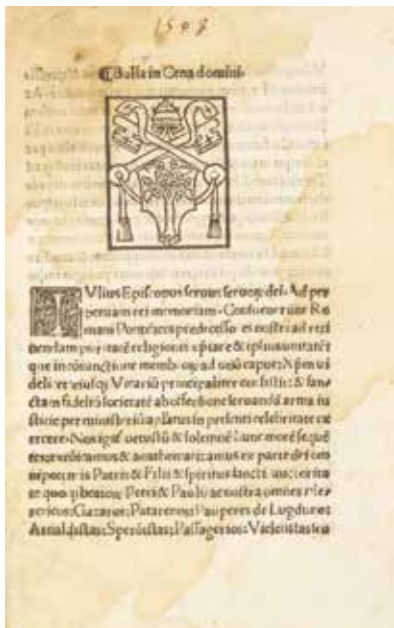 1508
⸿Bulla in Cena domini·
IVlius Episcopus seruus seruoꝝ dei· Ad per
petuam rei memoriam· Consueuerunt Ro
mani Pontifices predecessores nostri ad reti
nendam puritatẽ religionis xp̃iane & ipsius unitatẽ
que in coniunctione membroꝝ ad unũ caput
deli
principaliter consistit: & sanc
tam fideliũ societatẽ ab offensione seruandã arma iu
sticie per ministeriũ apl̃atus in presenti celebritate ex
ercere: Nos igit̃ uetustũ & solemnẽ hunc morẽ sequẽ
tes excõicamus & anathematizamus ex parte dei om
nipotentis Patris & Filii & spiritus sancti auctorita
te quoqꝫ beatoꝝ Petri & Pauli ac nostra omnes
Gazaros: Patarenos: Pauperes de Lugduno:
Arnaldistas: Speronistas: Passagerios: